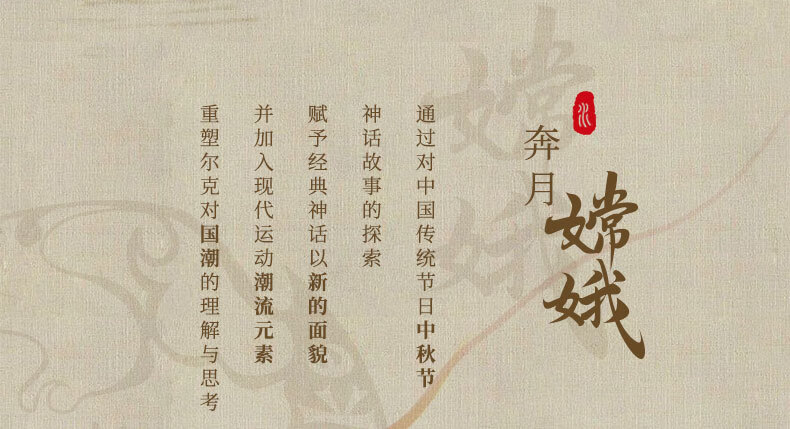 嫦娥
奔月
通过对中国传统节日中秋节
神话故事的探索
赋予经典神话以新的面貌
并加入现代运动潮流元素
重塑尔克对国潮的理解与思考